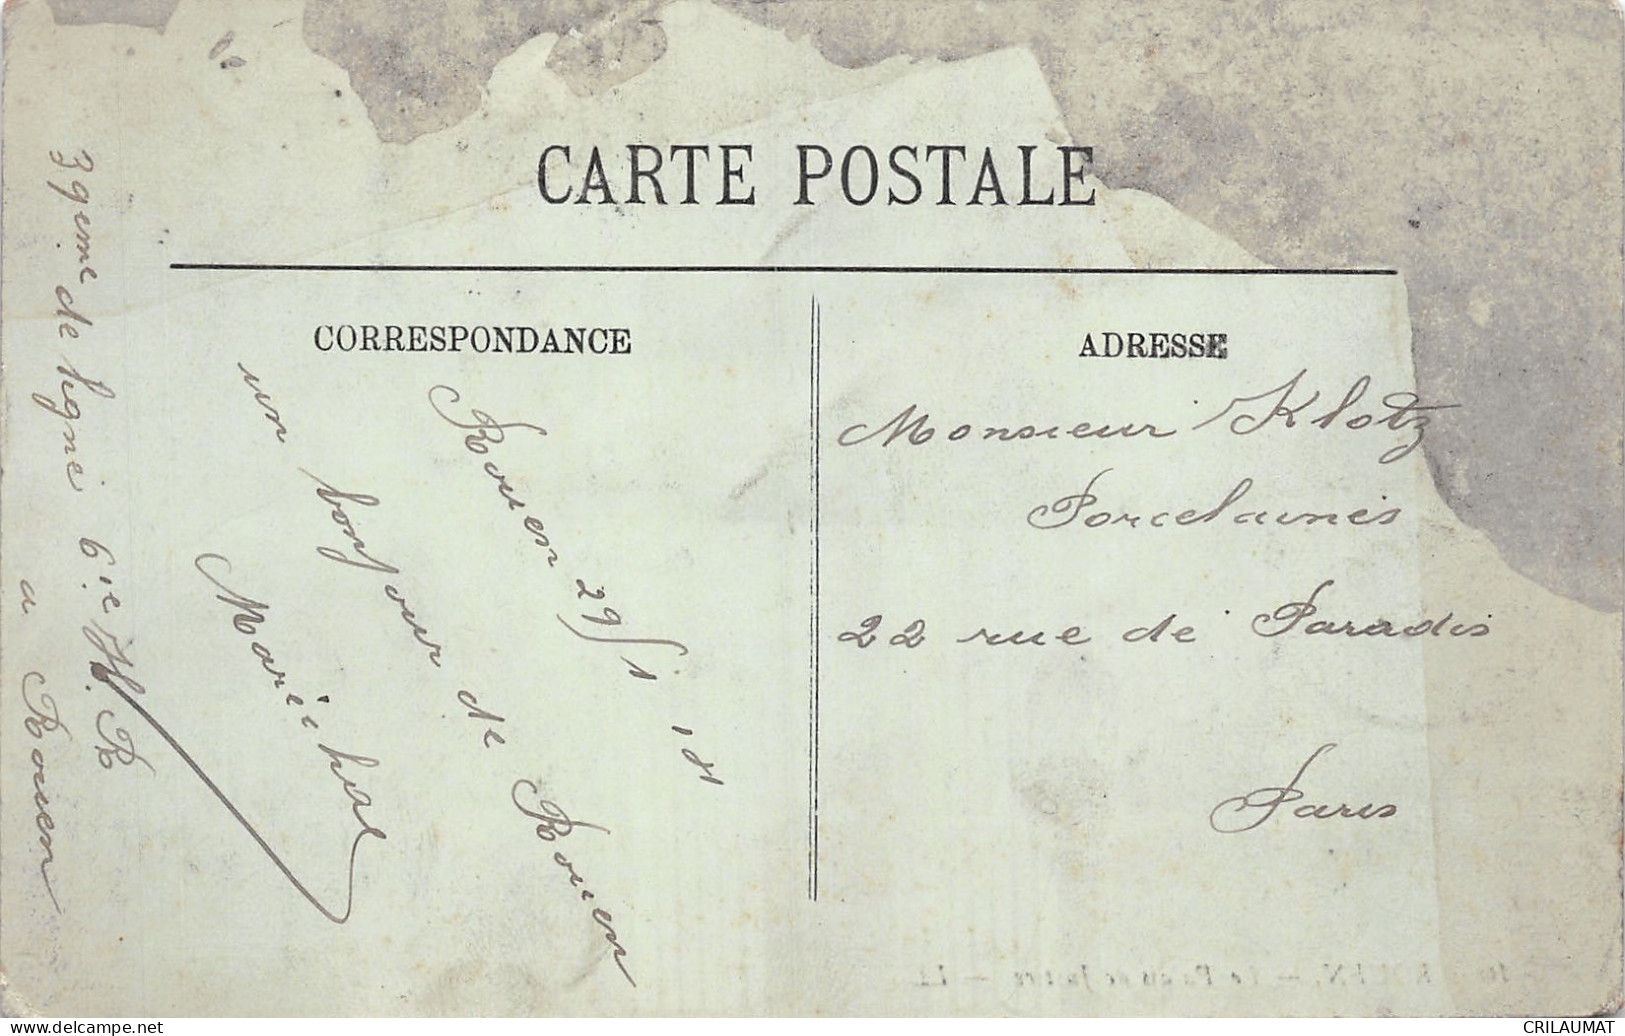 CARTE POSTALE
CORRESPONDANCE
Rouen 29/1 18
un bonjour de Rouen
Maréchal
39eme de ligne 6.ie H. R
a Rouen
ADRESSE
Monsieur Klotz
Porcelaines
22 rue de Paradis
Paris
ROUEN. — Le Palais de Justice — LL
CRILAUMAT